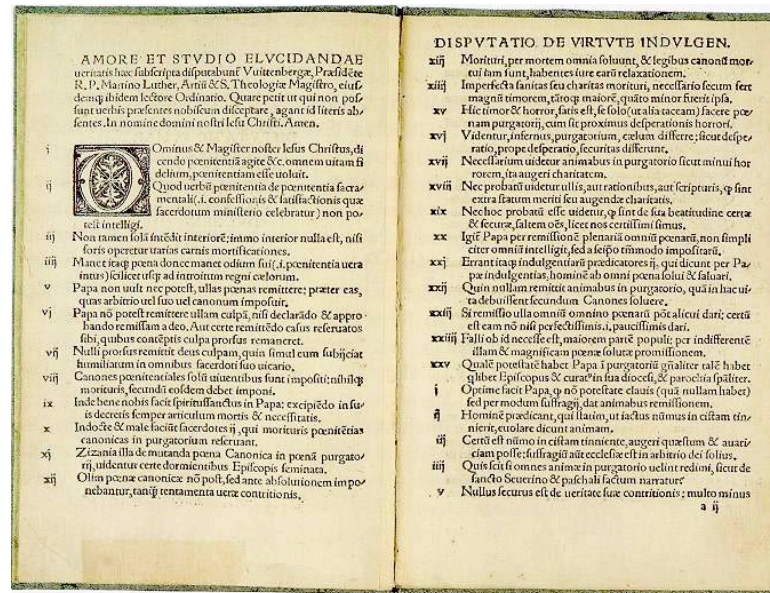 AMORE ET STVDIO ELVCIDANDAE
ueritatis hæc subscripta disputabunt̃ Vuittenbergæ, Præsidẽte
R. P. Martino Luther, Artiũ & S. Theologiæ Magistro, eius/
demq; ibidem lectore Ordinatio. Quare petit ut qui non pos/
sunt uerbis præsentes nobiscum disceptare, agant id literis ab/
sentes. In nomine domini nostri Iesu Christi. Amen.
i Ominus & Magister noster Iesus Christus, di
cendo pœnitentiã agite &c, omnem uitam fi
delium, pœnitentiam esse uoluit.
ij Quod uerbũ pœnitentia de pœnitentia sacra/
mentali (.i. confessionis & satisfactionis quæ
sacerdotum ministerio celebratur) non po/
test intelligi.
iij Non tamen solã intẽdit interiorẽ: immo interior nulla est, nisi
foris operetur uarias carnis mortificationes.
iiij Manet itaq; pœna donec manet odium sui (.i. pœnitentia uera
intus) scilicet usq; ad introitum regni cælorum.
v Papa non uult nec potest, ullas pœnas remittere: præter eas,
quas arbitrio uel suo uel canonum imposuit.
vj Papa nõ potest remittere ullam culpã, nisi declarãdo & appro/
bando remissam a deo. Aut certe remittẽdo casus reseruatos
sibi, quibus contẽptis culpa prorsus remaneret.
vij Nulli prorsus remittit deus culpam, quin simul eum subijciat
humiliatum in omnibus sacerdoti suo uicario.
viij Canones pœnitentiales solũ uiuentibus sunt impositi: nihilq;
morituris, secundũ eosdem debet imponi.
ix Inde bene nobis facit spiritussanctus in Papa: excipiẽdo in su/
is decretis semper articulum mortis & necessitatis.
x Indocte & male faciũt sacerdotes ij, qui morituris pœnitẽtias
canonicas in purgatorium reseruant.
xj Zizania illa de mutanda pœna Canonica in pœnã purgato/
rij, uidentur certe dormientibus Episcopis seminata.
xij Olim pœnæ canonicæ nõ post, sed ante absolutionem impo/
nebantur, tanq̃ tentamenta ueræ contritionis.
DISPVTATIO DE VIRTVTE INDVLGEN.
xiij Morituri, per mortem omnia soluunt, & legibus canonũ mor/
tui iam sunt, habentes iure earũ relaxationem.
xiiij Imperfecta sanitas seu charitas morituri, necessario secum fert
magnũ timorem, tãtoq; maiorẽ, quãto minor fuerit ipsa.
xv Hic timor & horror, satis est, se solo (ut alia taceam) facere pœ/
nam purgatorij, cum sit proximus desperationis horrori.
xvj Videntur, infernus, purgatorium, cælum differre: sicut despe/
ratio, prope desperatio, securitas differunt.
xvij Necessarium uidetur animabus in purgatorio sicut minui hor
rorem, ita augeri charitatem.
xviij Nec probatũ uidetur ullis, aut rationibus, aut scripturis, q̃ sint
extra statum meriti seu augendæ charitatis.
xix Nec hoc probatũ esse uidetur, q̃ sint de sua beatitudine certæ
& securæ, saltem oẽs, licet nos certissimi simus.
xx Igit̃ Papa per remissionẽ plenariã omniũ pœnarũ, non simpli
citer omniũ intelligit, sed a seipso tm̃modo impositarũ.
xxj Errant itaq; indulgentiarũ prædicatores ij, qui dicunt per Pa/
pæ indulgentias, hominẽ ab omni pœna solui & saluari.
xxij Quin nullam remittit animabus in purgatorio, quã in hac ui/
ta debuissent secundum Canones soluere.
xxiij Si remissio ulla omniũ omnino pœnarũ põt alicui dari: certũ
est eam nõ nisi perfectissimis .i. paucissimis dari.
xxiiij Falli ob id necesse est, maiorem partẽ populi: per indifferentẽ
illam & magnificam pœnæ solutæ promissionem.
xxv Qualẽ potestatẽ habet Papa ĩ purgatoriũ gñaliter talẽ habet
q̃libet Episcopus & curat⁹ in sua diocesi, & parochia sp̃aliter.
i Optime facit Papa, q̃ nõ potestate clauis (quã nullam habet)
sed per modum suffragij, dat animabus remissionem.
ij Hominẽ prædicant, qui statim, ut iactus nũmus in cistam tin/
nierit, euolare dicunt animam.
iij Certũ est nũmo in cistam tinniente, augeri quæstum & auari/
ciam posse: suffragiũ aũt ecclesiæ est in arbitrio dei solius.
iiij Quis scit si omnes animæ in purgatorio uelint redimi, sicut de
sancto Seuerino & paschali factum narratur?
v Nullus securus est de ueritate suæ contritionis: multo minus
a ij